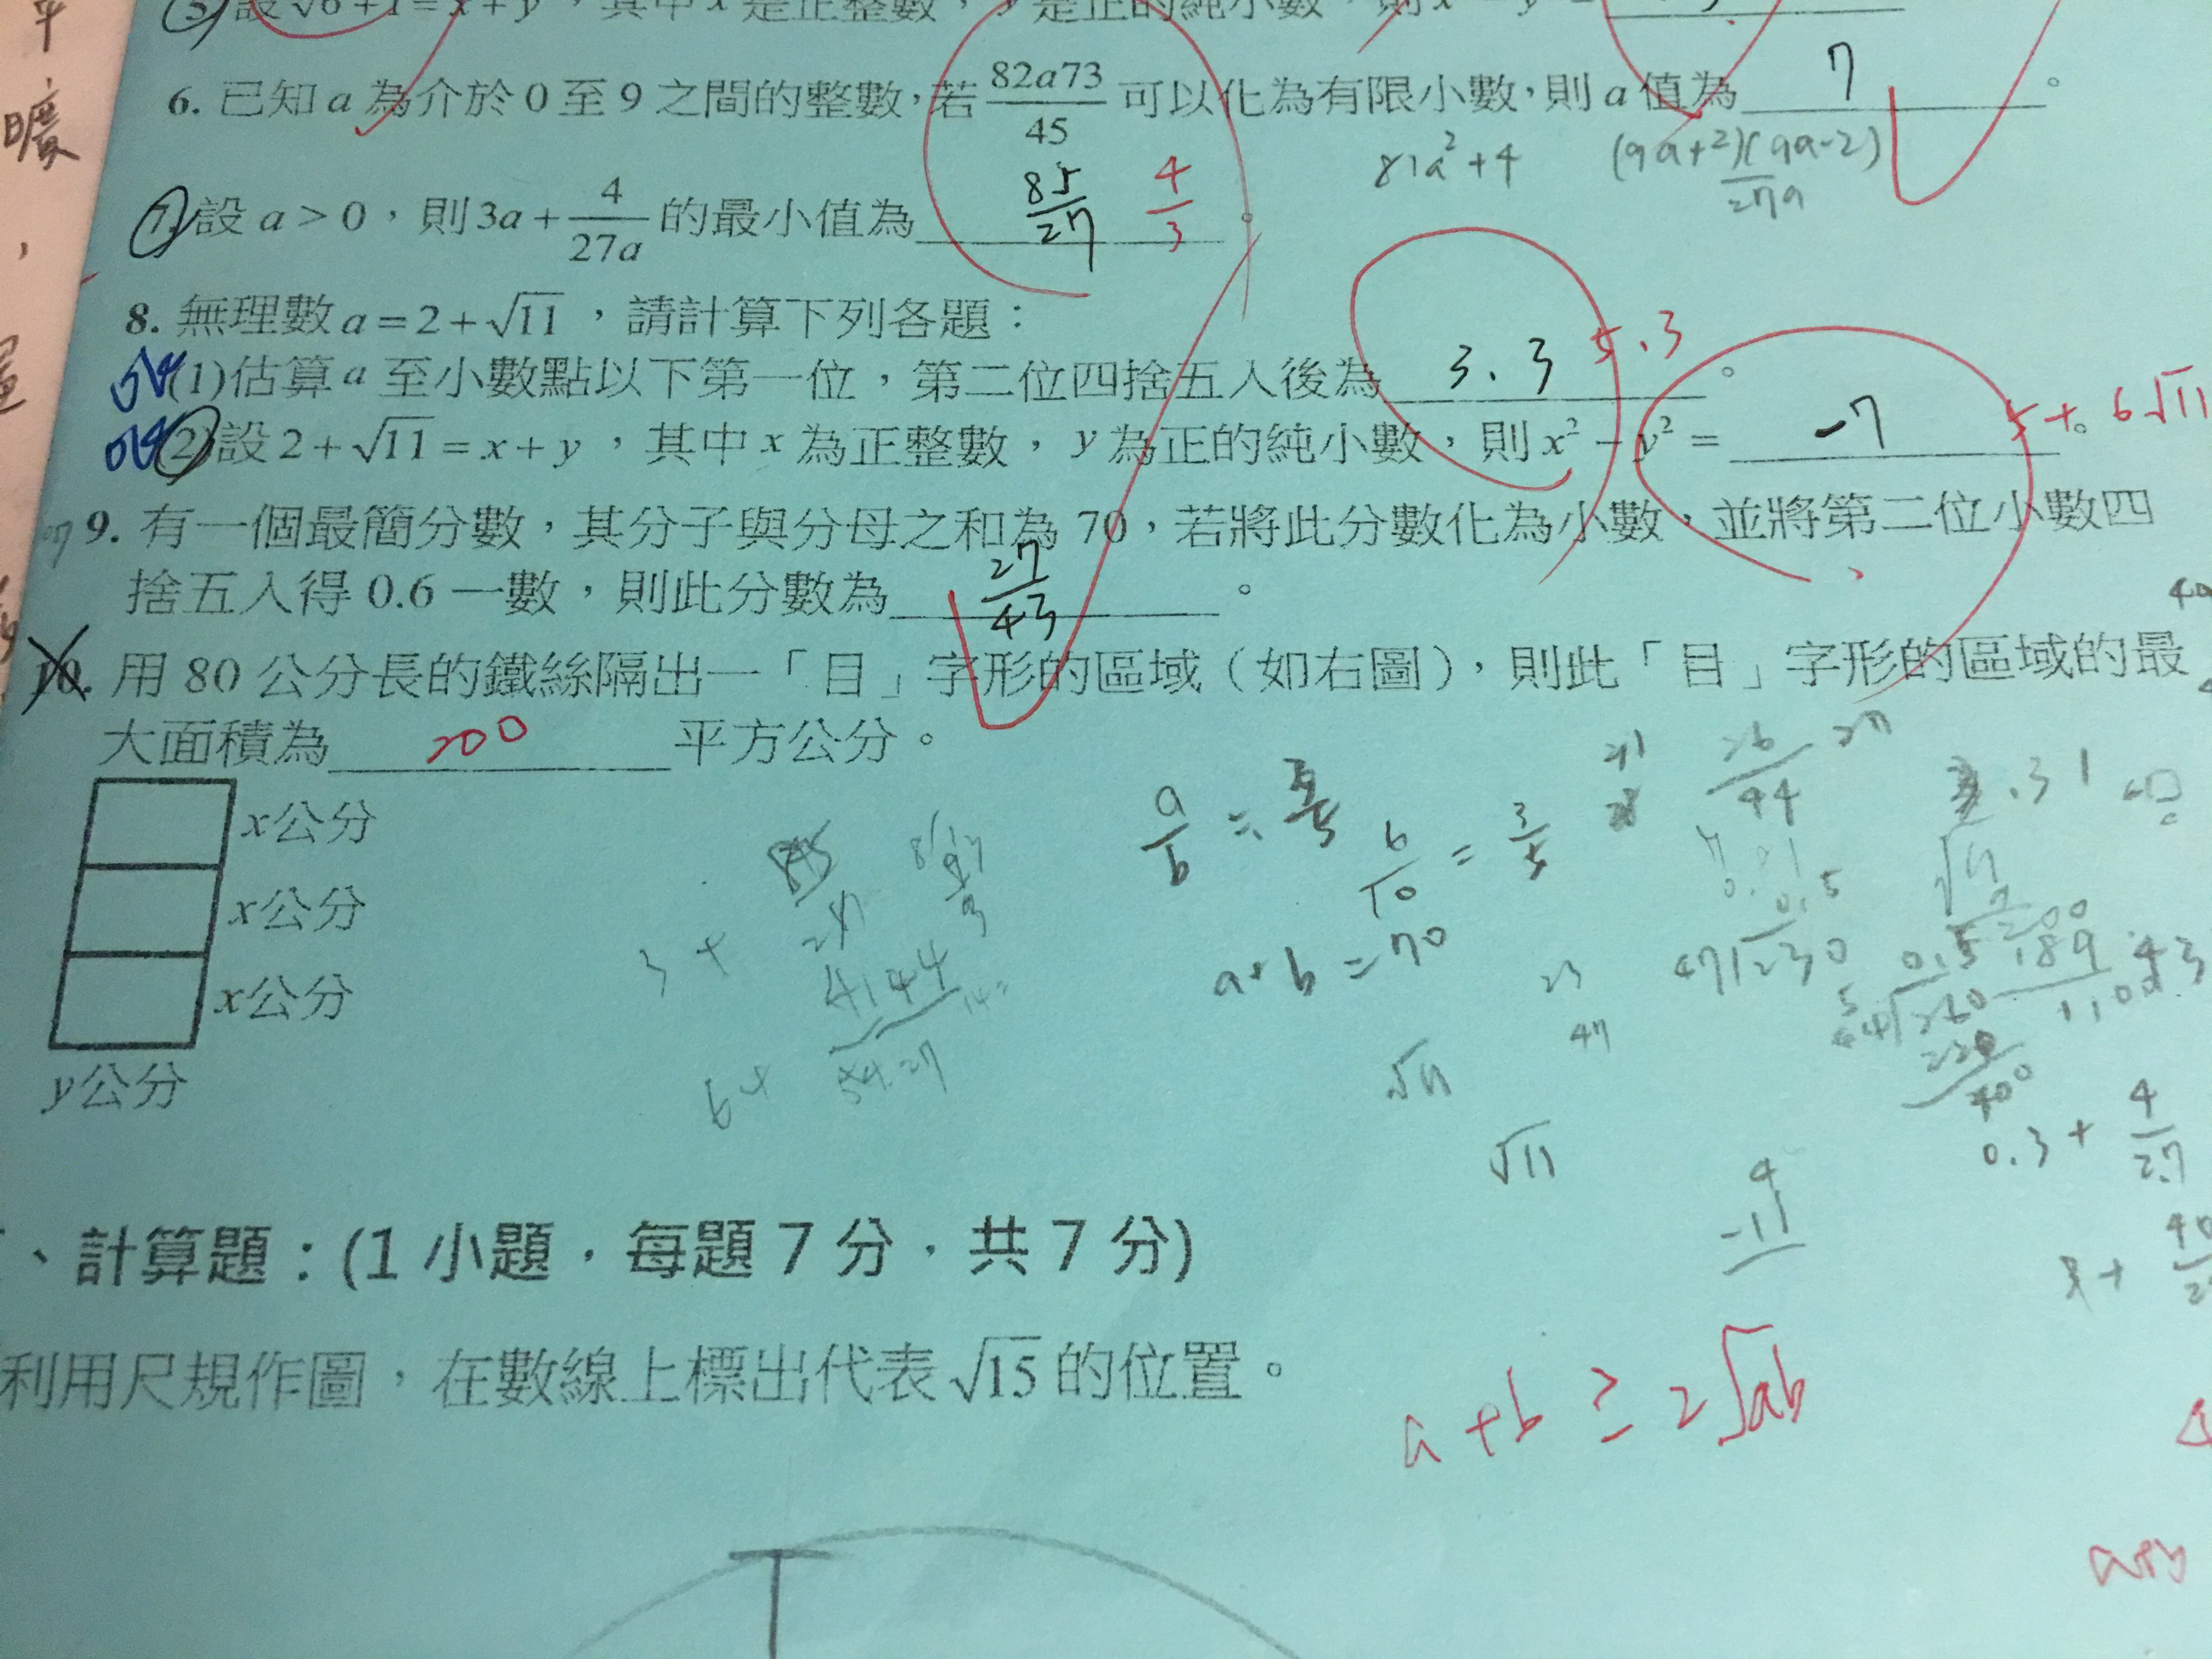 平
曠
,
5 設 √6+1=x+y，其中 x 是正整數，y 是正的純小數，則 x
6. 已知 a 為介於 0 至 9 之間的整數，若 82a73/45 可以化為有限小數，則 a 值為 7 。
81a²+4 (9a+2)(9a-2)/27a
7. 設 a > 0，則 3a + 4/27a 的最小值為 85/27 4/3 。
8. 無理數 a = 2 + √11，請計算下列各題：
(1)估算 a 至小數點以下第一位，第二位四捨五入後為 3.3 5.3 。
(2)設 2 + √11 = x + y，其中 x 為正整數，y 為正的純小數，則 x² − y² = -7 。 5+6√11
9. 有一個最簡分數，其分子與分母之和為 70，若將此分數化為小數，並將第二位小數四
捨五入得 0.6 一數，則此分數為 27/43 。
10. 用 80 公分長的鐵絲隔出一「目」字形的區域（如右圖），則此「目」字形的區域的最
大面積為 200 平方公分。
x公分
x公分
x公分
y公分
a/b = 3/5 6/10 = 3/5
a+b=70
26/44 27
.31
3+
6+
54.27
23
47
47 230
0.5
√11
√11
4
-11
0.3 + 4/27
、計算題：(1 小題，每題 7 分，共 7 分)
利用尺規作圖，在數線上標出代表 √15 的位置。
a+b ≥ 2√ab
a+b